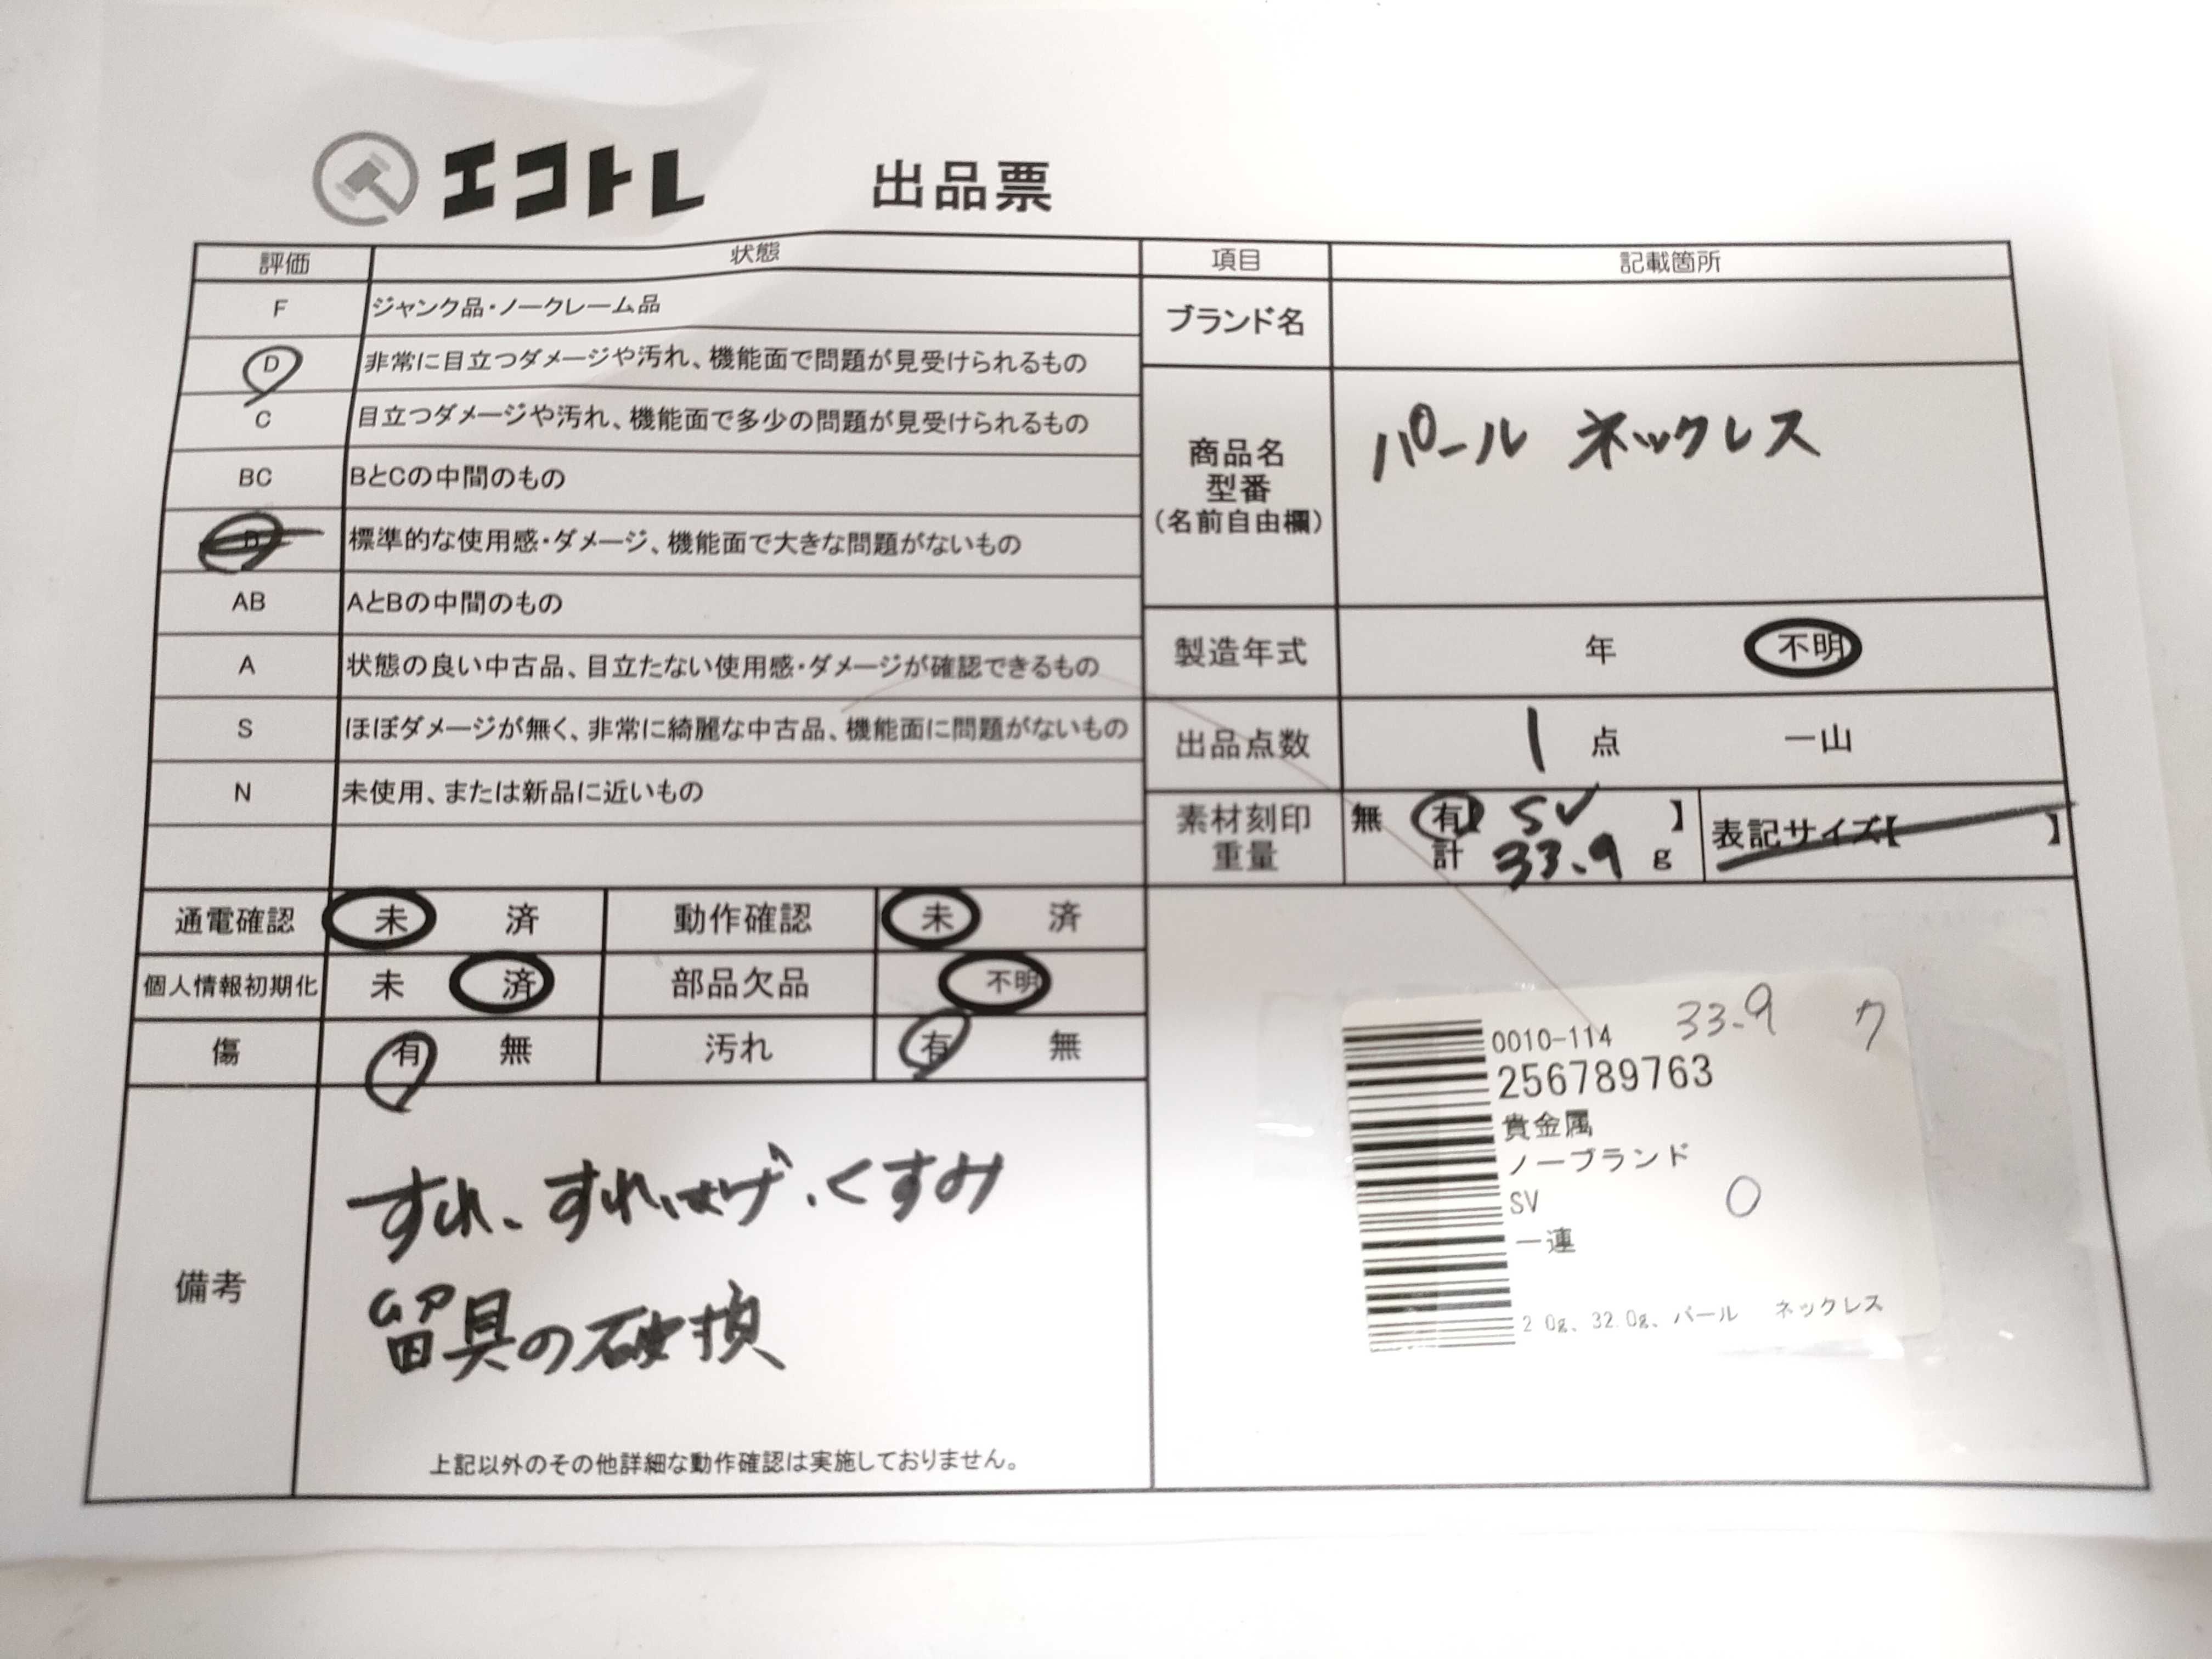 エコトレ 出品票
評価 状態
F ジャンク品・ノークレーム品
D 非常に目立つダメージや汚れ、機能面で問題が見受けられるもの
C 目立つダメージや汚れ、機能面で多少の問題が見受けられるもの
BC BとCの中間のもの
B 標準的な使用感・ダメージ、機能面で大きな問題がないもの
AB AとBの中間のもの
A 状態の良い中古品、目立たない使用感・ダメージが確認できるもの
S ほぼダメージが無く、非常に綺麗な中古品、機能面に問題がないもの
N 未使用、または新品に近いもの
項目 記載箇所
ブランド名
商品名
型番
(名前自由欄)
パールネックレス
製造年式 年 不明
出品点数 1 点 一山
素材刻印 無 有【 SV 】
重量 計 33.9 g
表記サイズ【 】
通電確認 未 済 動作確認 未 済
個人情報初期化 未 済 部品欠品 不明
傷 有 無 汚れ 有 無
備考
すれ、すれはげ、くすみ
留具の破損
上記以外のその他詳細な動作確認は実施しておりません。
33.9 ク
0010-114
256789763
貴金属
ノーブランド
SV
一連
2.0g、32.0g、パール ネックレス